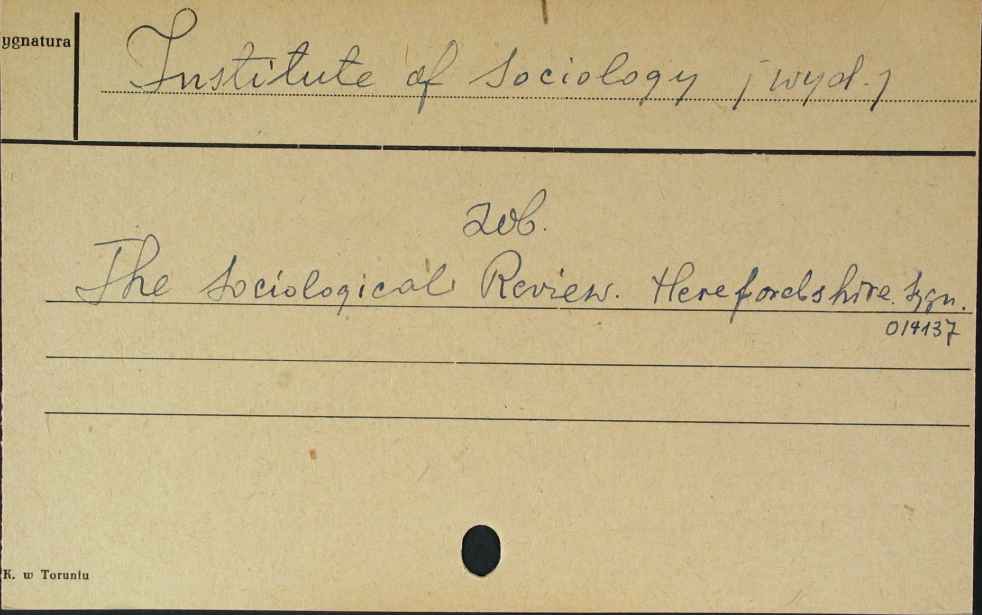 ygnatura
Institute of Sociology [wyd.]
zob.
The Sociological Review. Herefordshire. Sygn.
014137
K. w Toruniu